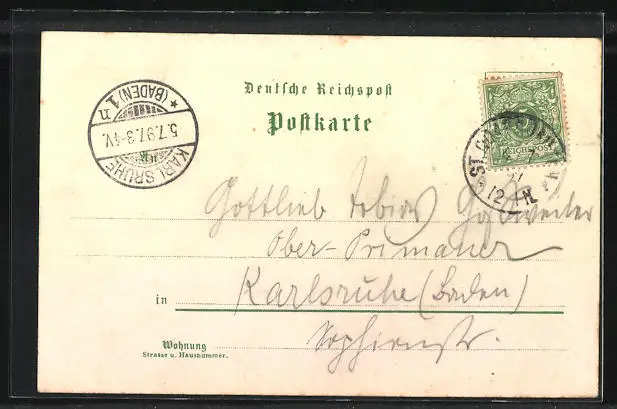 Deutsche Reichspost
Postkarte
KARLSRUHE
5.7.97.3-4V.
* (BADEN) 1 n
REICHSPOST
ST.
12-1N.
Gottlieb Tobias
Ober-Primaner
in Karlsruhe (Baden)
Sophienstr.
Wohnung
Strasse u. Hausnummer.